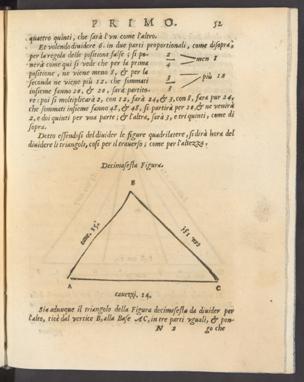 PRIMO. 52
quattro quinti, che sarà l'vn come l'altro.
Et volendo diuidere 6. in due parti proportionali, come disopra,
per la regola delle positioni false; si po- 2
nerà come qui si vede che per la prima 4 men 8
positione, ne viene meno 8, & per la
seconda ne viene più 12. che summati 3 più 12
insieme fanno 20, & 20, sarà partito-
re: poi si moltiplicarà 2, con 12, sarà 24, & 3, con 8, sarà pur 24,
che summati insieme fanno 48, & 48, si partirà per 20, & ne venirà
2, e doi quinti per vna parte; & l'altra, sarà 3, e tri quinti, come di
sopra.
Detto essendosi del diuider le figure quadrilatere, si dirà hora del
diuidere li triangoli, così per il trauerso; come per l'altezza.
Decimasesta Figura.
B
cane. 15.
A C
cauezzi. 24.
Sia adunque il triangolo della Figura decimasesta da diuider per
l'alto, cioè dal vertice B, alla Base AC, in tre parti vguali, & pon-
N 2 go che